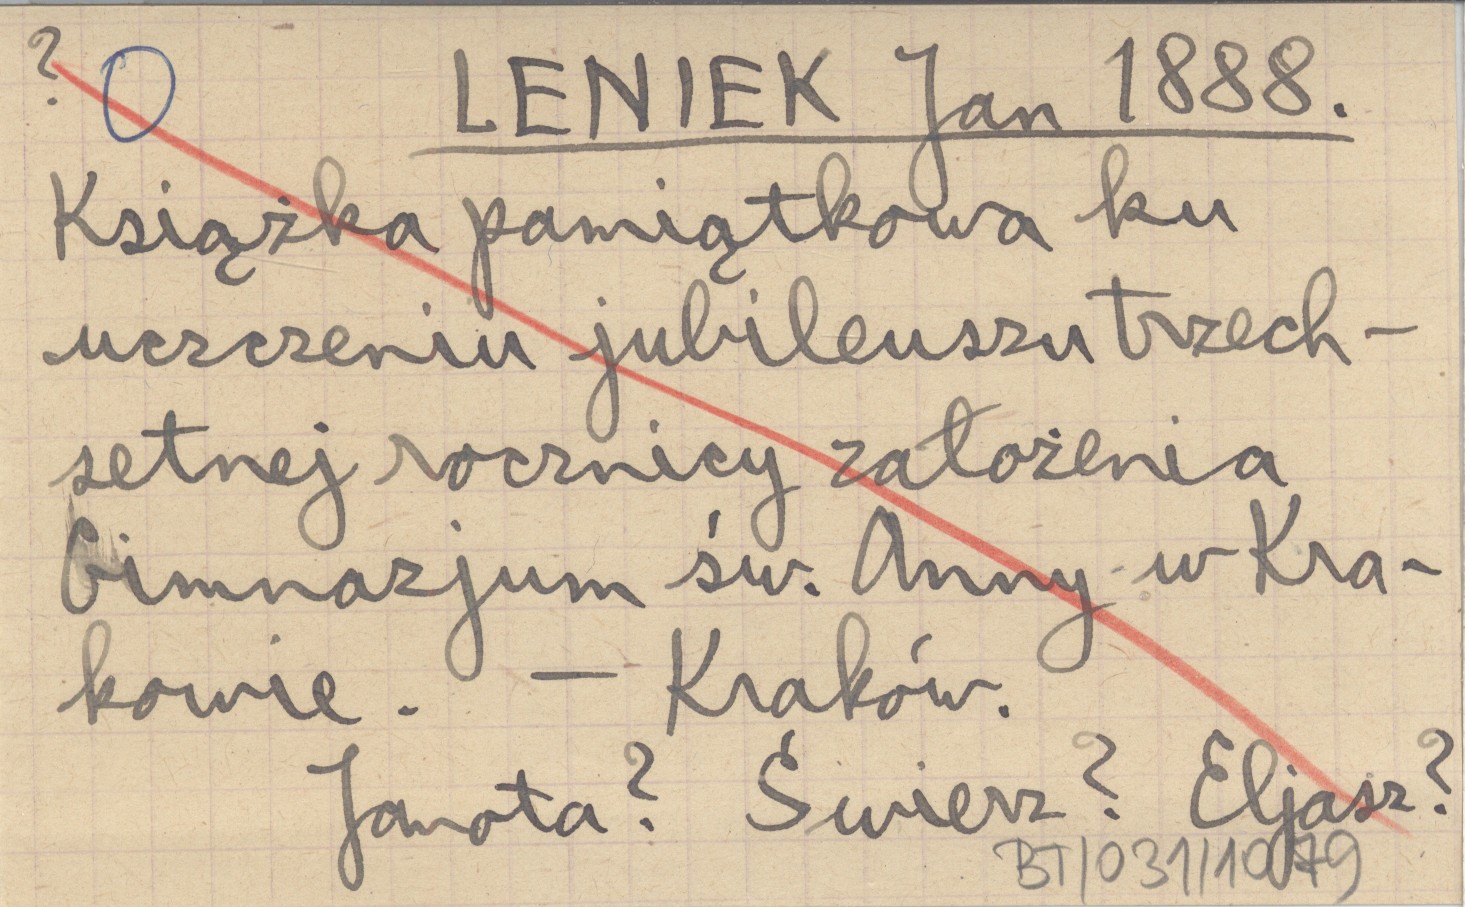 ? O LENIEK Jan 1888.
Książka pamiątkowa ku
uczczeniu jubileuszu trzech-
setnej rocznicy założenia
Gimnazjum św. Anny w Kra-
kowie. — Kraków.
Janota? Świerz? Eljasz?
BT/031/1079